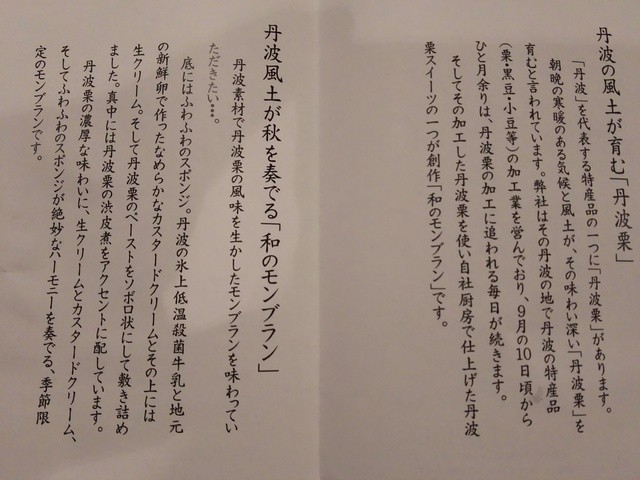 丹波の風土が育む「丹波栗」
「丹波」を代表する特産品の一つに「丹波栗」があります。
朝晩の寒暖のある気候と風土が、その味わい深い「丹波栗」を
育むと言われています。弊社はその丹波の地で丹波の特産品
(栗・黒豆・小豆等)の加工業を営んでおり、9月の10日頃から
ひと月余りは、丹波栗の加工に追われる毎日が続きます。
そしてその加工した丹波栗を使い自社厨房で仕上げた丹波
栗スイーツの一つが創作「和のモンブラン」です。
丹波風土が秋を奏でる「和のモンブラン」
丹波素材で丹波栗の風味を生かしたモンブランを味わってい
ただきたい…。
底にはふわふわのスポンジ。丹波の氷上低温殺菌牛乳と地元
の新鮮卵で作ったなめらかなカスタードクリームとその上には
生クリーム。そして丹波栗のペーストをソボロ状にして敷き詰め
ました。真中には丹波栗の渋皮煮をアクセントに配しています。
丹波栗の濃厚な味わいに、生クリームとカスタードクリーム、
そしてふわふわのスポンジが絶妙なハーモニーを奏でる、季節限
定のモンブランです。